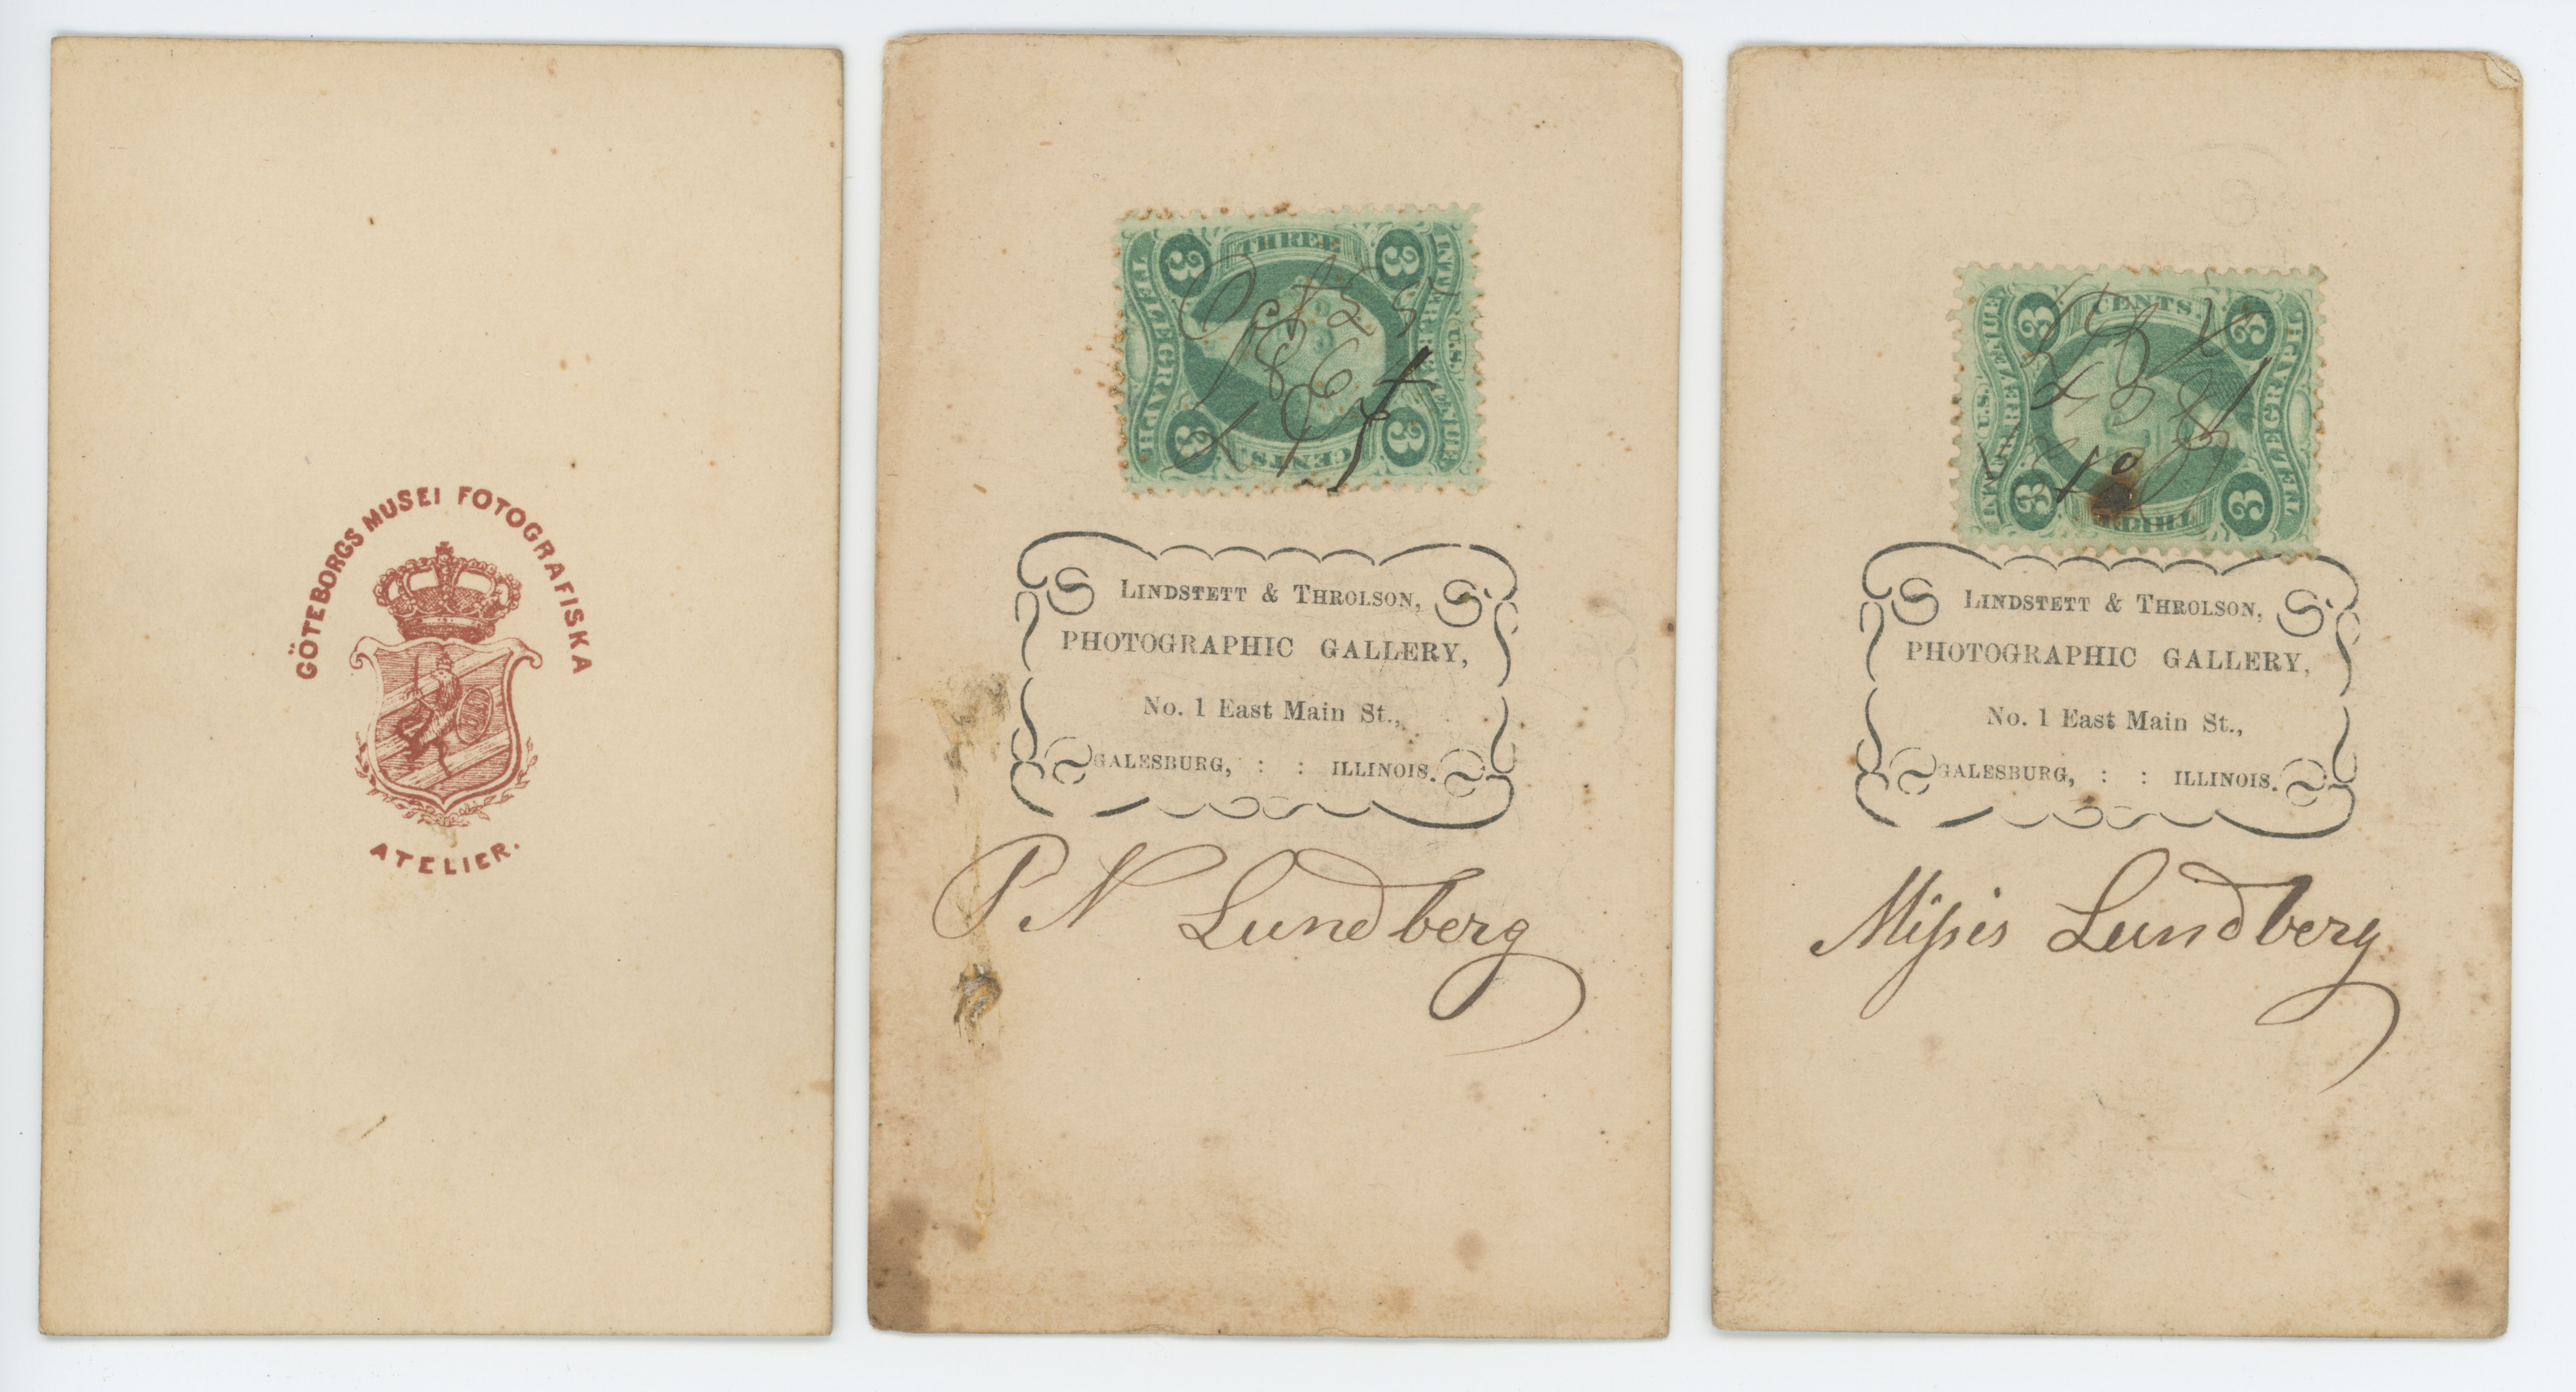 GÖTEBORGS MUSEI FOTOGRAFISKA
ATELIER.
THREE
3 3
TELEGRAPH.
U.S. INTER. REVENUE
Oct 25
1864
L & T
3 3
CENTS.
LINDSTETT & THROLSON,
PHOTOGRAPHIC GALLERY,
No. 1 East Main St.,
GALESBURG, : : ILLINOIS.
P N Lundberg
CENTS.
3 3
U.S. INTER. REVENUE
TELEGRAPH.
3 3
LINDSTETT & THROLSON,
PHOTOGRAPHIC GALLERY,
No. 1 East Main St.,
GALESBURG, : : ILLINOIS.
Misis Lundberg